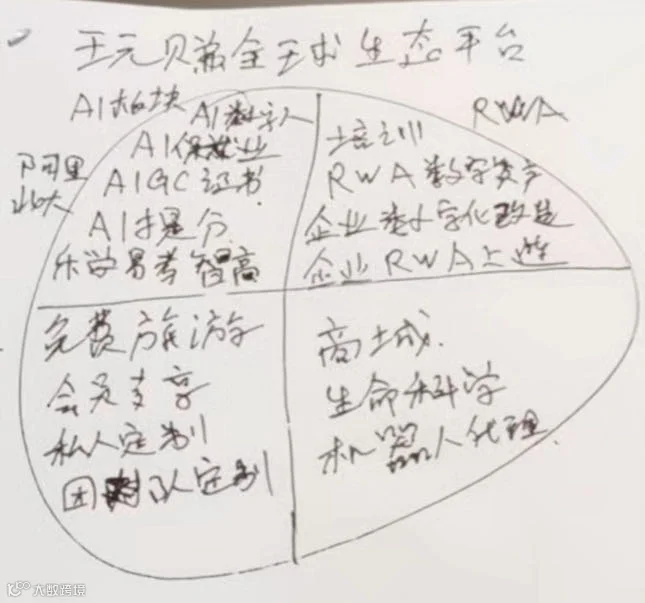 王元贝瀛全球生态平台
AI板块
RWA
AI数字人
AI保就业
阿里
北大
AIGC证书
AI提分
乐学易考智高
培训
RWA数字资产
企业数字化改造
企业RWA上链
免费旅游
会员专享
私人定制
团队定制
商城
生命科学
机器人代理
大数跨境